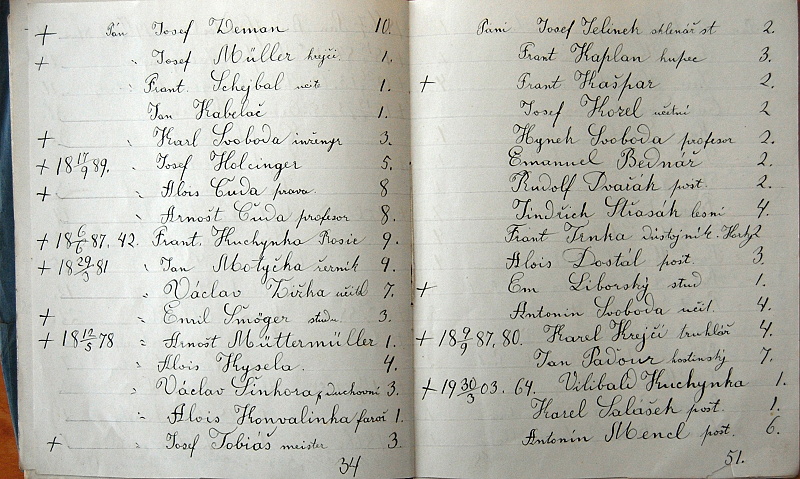 + Pán Josef Deman 10.
+ " Josef Müller krejčí. 1.
" Frant. Schejbal učit. 1.
Jan Kabeláč 1.
+ " Karl Svoboda inženýr 3.
+ 18 17/9 89. " Josef Holcinger 5.
+ " Alois Čuda prava. 8
" Arnošt Čuda profesor 8.
+ 18 6/6 87. 42. Frant. Kuchynka Rosic 9.
+ 18 29/3 81 " Jan Motyčka 9.
" Václav Žižka učitel 7.
+ " Emil studu. 3.
+ 18 12/5 78 " Arnošt Müttermüller 1.
" Alois Kysela. 4.
" Václav Sinhora, duchovní 3.
" Alois Konvalinka farář 1.
+ " Josef Tobiáš meister 3.
34
Páni Josef Jelínek sklenář st 2.
Frant Kaplan kupec 3.
+ Frant Kašpar 2.
Josef Kozel učetní 2
Hynek Svoboda profesor 2.
Emanuel Bednář 2.
Rudolf Dvořák post. 2.
Jindřich lesní 4.
Frant Trnka důstojník. 2
Alois Dostál post. 3.
+ Em Liborský stud 1.
Antonín Svoboda učit. 4.
+ 18 9/9 87, 80. Karel Krejčí truhlář 4.
Jan Paďour hostinský 7.
+ 19 30/3 03. 64. Vilibald Kuchynka 1.
Karel Salášek post. 1.
Antonín Mencl post. 6.
51.